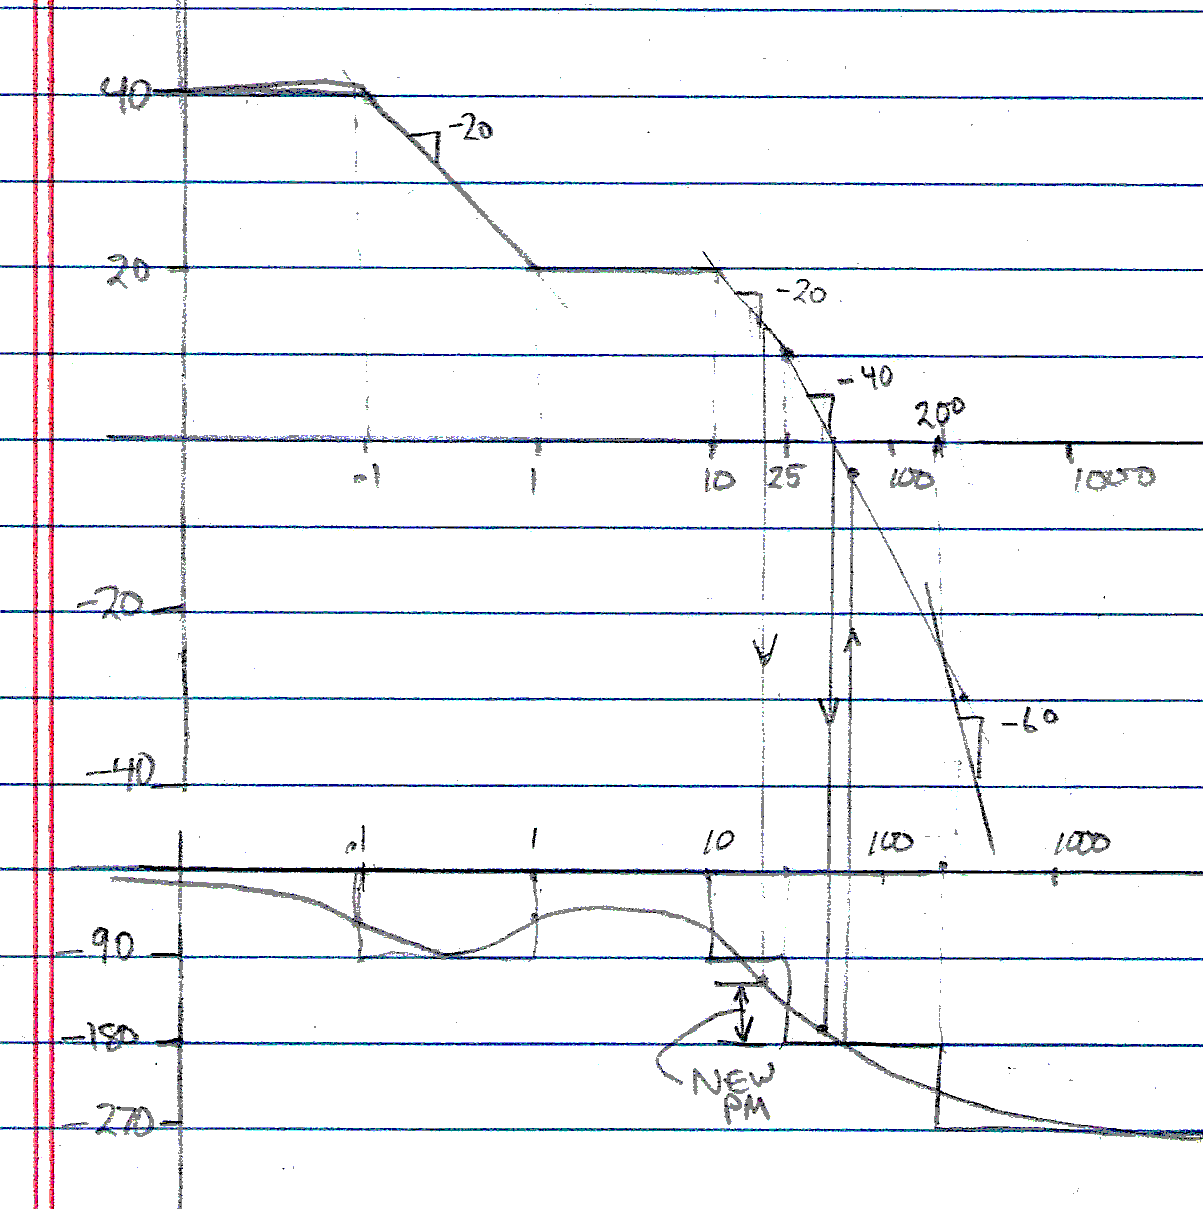 40
-20
20
-20
-40
200
.1
1
10
25
100
1000
-20
-60
-40
.1
1
10
100
1000
-90
-180
NEW
PM
-270